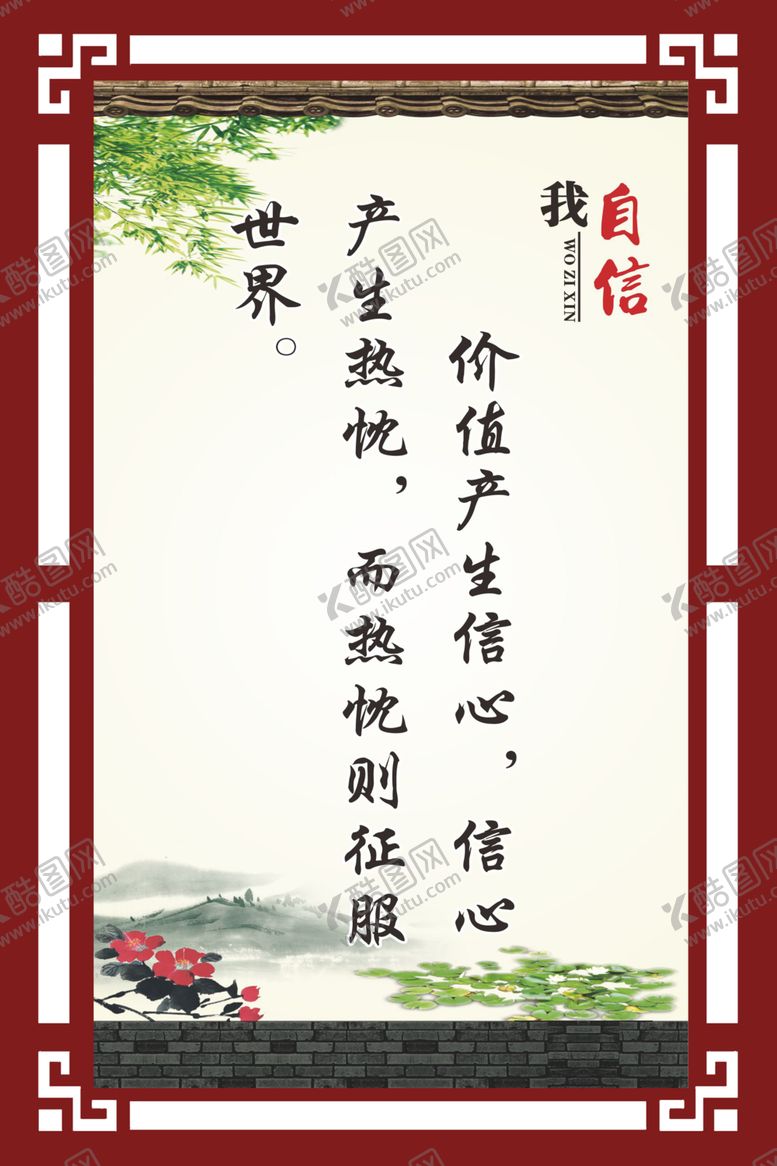 我自信
WO ZI XIN
价值产生信心，信心
产生热忱，而热忱则征服
世界。
酷图网
www.ikutu.com